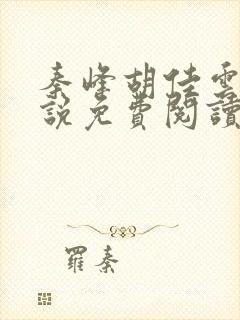 秦峰胡佳雲
說免費閱讀
羅秦